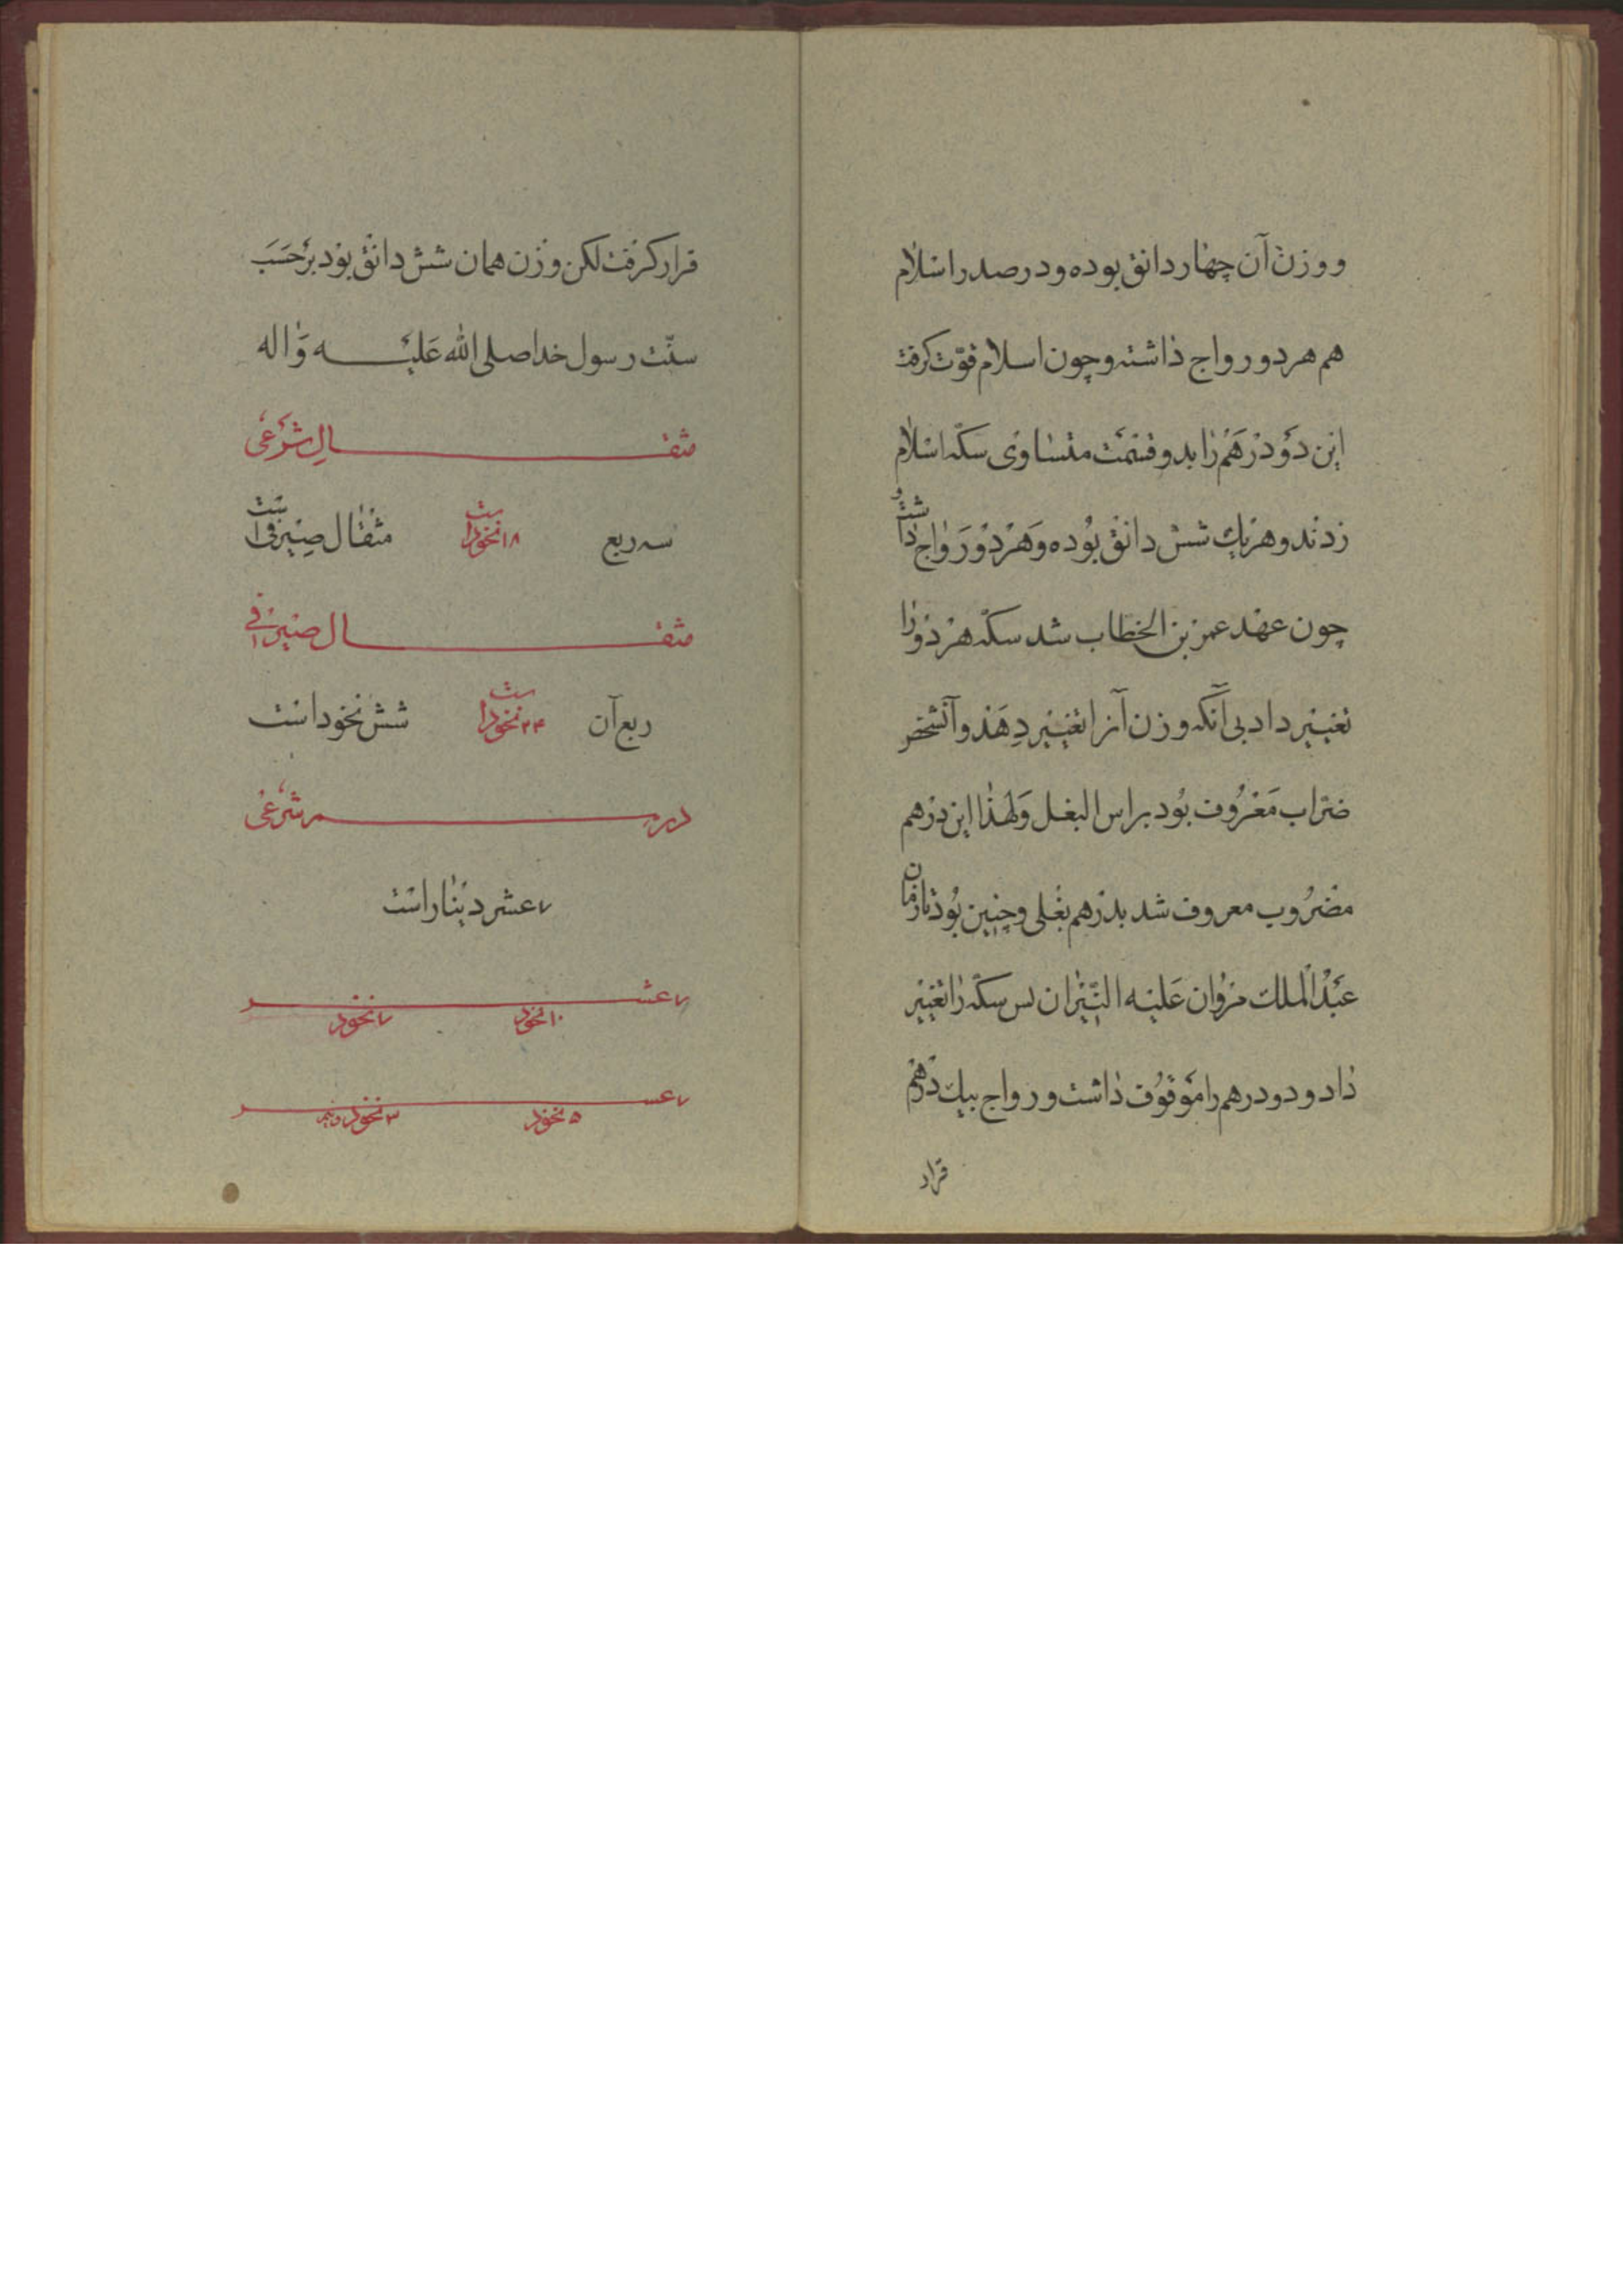 و وزن آن چهار دانق بوده و در صدر اسلام
هم هر دو رواج داشته و چون اسلام قوّت گرفت
این دو درهم را بدو قسمت متساوی سکّه اسلام
زدند و هریک شش دانق بوده و هر دو رواج داشت و
چون عهد عمر بن الخطاب شد سکّه هر دو را
تغییر داد بی آنکه وزن آنرا تغییر دهد و آنشخص
ضرّاب معروف بود براس البغل و لهذا این درهم
مضروب معروف شد بدرهم بغلی و چنین بود تا زمان
عبد الملک مروان علیه النّیران پس سکّه را تغییر
داد و دو درهم را موقوف داشت و رواج بیک درهم
قرار
قرار گرفت لکن وزن همان شش دانق بود بر حسب
سنّت رسول خدا صلی الله علیه و اله
مثقال شرعی
سه ربع ۱۸ نخود است مثقال صیرفی است
مثقال صیرفی
ربع آن ۲۴ نخود است شش نخود است
درهم شرعی
۷ عشر دینار است
۷ عشر
۱۰ نخود ۷ نخود
۷ عشر
۵ نخود ۳ نخود و نیم